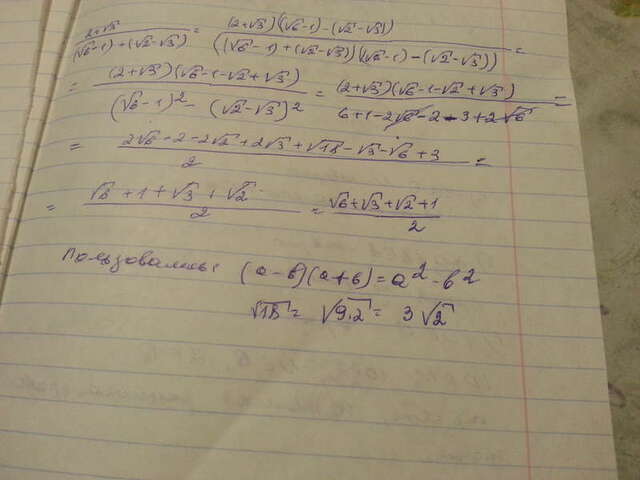 (2+√3)/((√6-1)+(√2-√3)) = ((2+√3)((√6-1)-(√2-√3)))/(((√6-1)+(√2-√3))((√6-1)-(√2-√3))) =
= ((2+√3)(√6-1-√2+√3))/((√6-1)²-(√2-√3)²) = ((2+√3)(√6-1-√2+√3))/(6+1-2√6-2-3+2√6) =
= (2√6-2-2√2+2√3+√18-√3-√6+3)/2 =
= (√6+1+√3+√2)/2 = (√6+√3+√2+1)/2
(a-b)(a+b)=a²-b²
√18 = √9.2 = 3√2